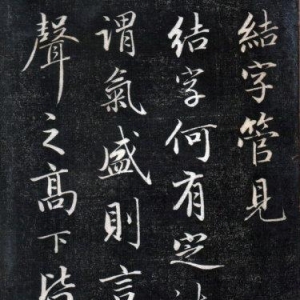 結字管見
結字何有定
謂氣盛則言
聲之髙下皆